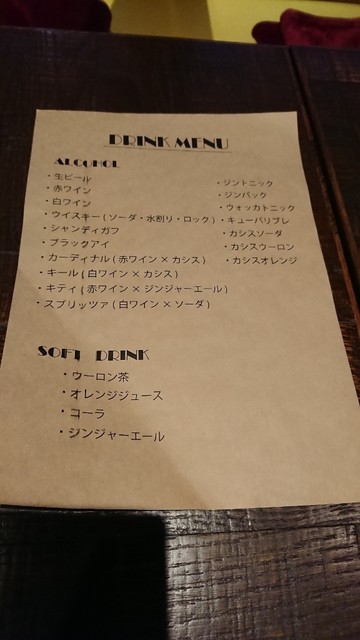 DRINK MENU
ALCOHOL
・生ビール
・赤ワイン
・白ワイン
・ウイスキー(ソーダ・水割り・ロック)
・シャンディガフ
・ブラックアイ
・カーディナル(赤ワイン×カシス)
・キール(白ワイン×カシス)
・キティ(赤ワイン×ジンジャーエール)
・スプリッツァ(白ワイン×ソーダ)
・ジントニック
・ジンバック
・ウォッカトニック
・キューバリブレ
・カシスソーダ
・カシスウーロン
・カシスオレンジ
SOFT DRINK
・ウーロン茶
・オレンジジュース
・コーラ
・ジンジャーエール